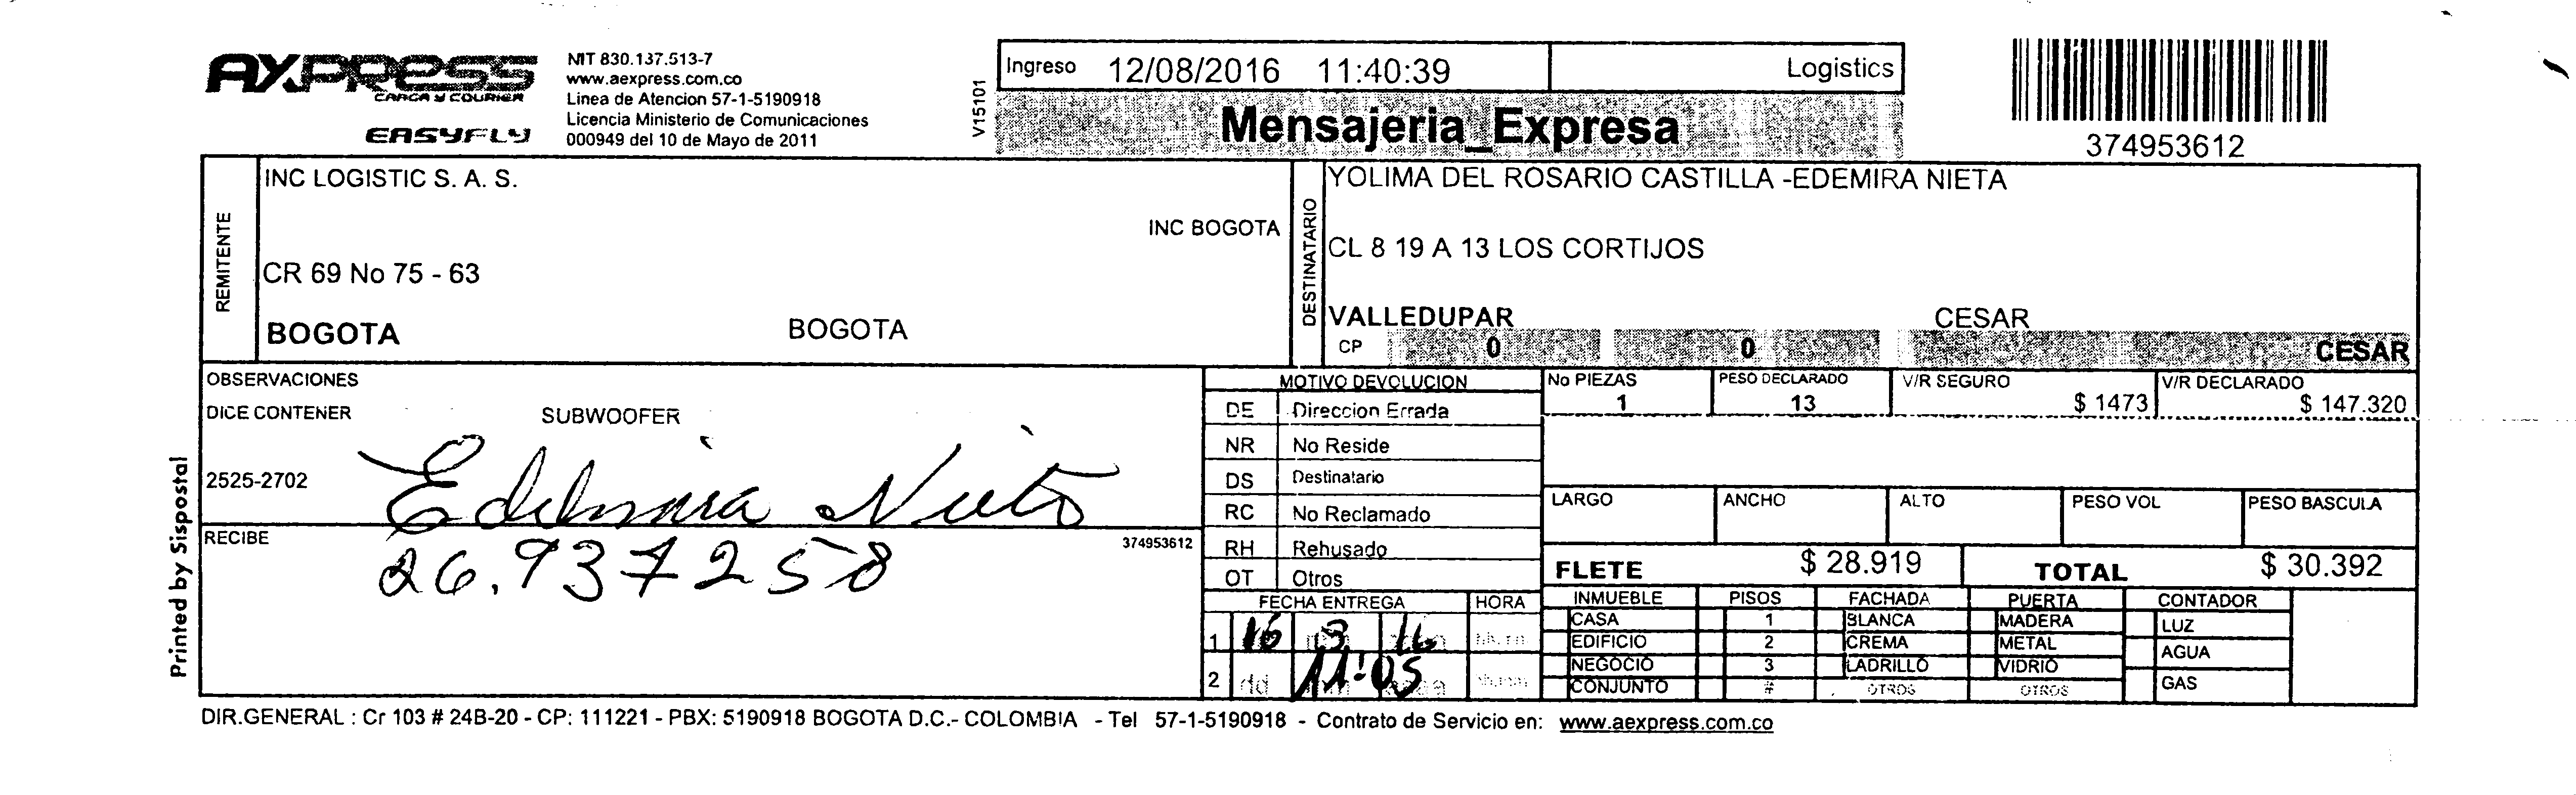 AXPRESS
CARGA Y COURIER
EASYFLY
NIT 830.137.513-7
www.aexpress.com.co
Linea de Atencion 57-1-5190918
Licencia Ministerio de Comunicaciones
000949 del 10 de Mayo de 2011
V15101
Ingreso 12/08/2016 11:40:39 Logistics
Mensajeria_Expresa
374953612
REMITENTE
INC LOGISTIC S. A. S.
INC BOGOTA
CR 69 No 75 - 63
BOGOTA BOGOTA
DESTINATARIO
YOLIMA DEL ROSARIO CASTILLA -EDEMIRA NIETA
CL 8 19 A 13 LOS CORTIJOS
VALLEDUPAR CESAR
CP 0 0 CESAR
OBSERVACIONES
DICE CONTENER SUBWOOFER
2525-2702
Edelmira Nieto
RECIBE 374953612
26.937258
MOTIVO DEVOLUCION
DE Direccion Errada
NR No Reside
DS Destinatario
RC No Reclamado
RH Rehusado
OT Otros
FECHA ENTREGA HORA
1 16 16
2 dd 11:05
No PIEZAS PESO DECLARADO V/R SEGURO V/R DECLARADO
1 13 $ 1473 $ 147.320
LARGO ANCHO ALTO PESO VOL PESO BASCULA
FLETE $ 28.919 TOTAL $ 30.392
INMUEBLE PISOS FACHADA PUERTA CONTADOR
CASA 1 BLANCA MADERA LUZ
EDIFICIO 2 CREMA METAL AGUA
NEGOCIO 3 LADRILLO VIDRIO
CONJUNTO # OTROS OTROS GAS
Printed by Sispostal
DIR.GENERAL : Cr 103 # 24B-20 - CP: 111221 - PBX: 5190918 BOGOTA D.C.- COLOMBIA - Tel 57-1-5190918 - Contrato de Servicio en: www.aexpress.com.co